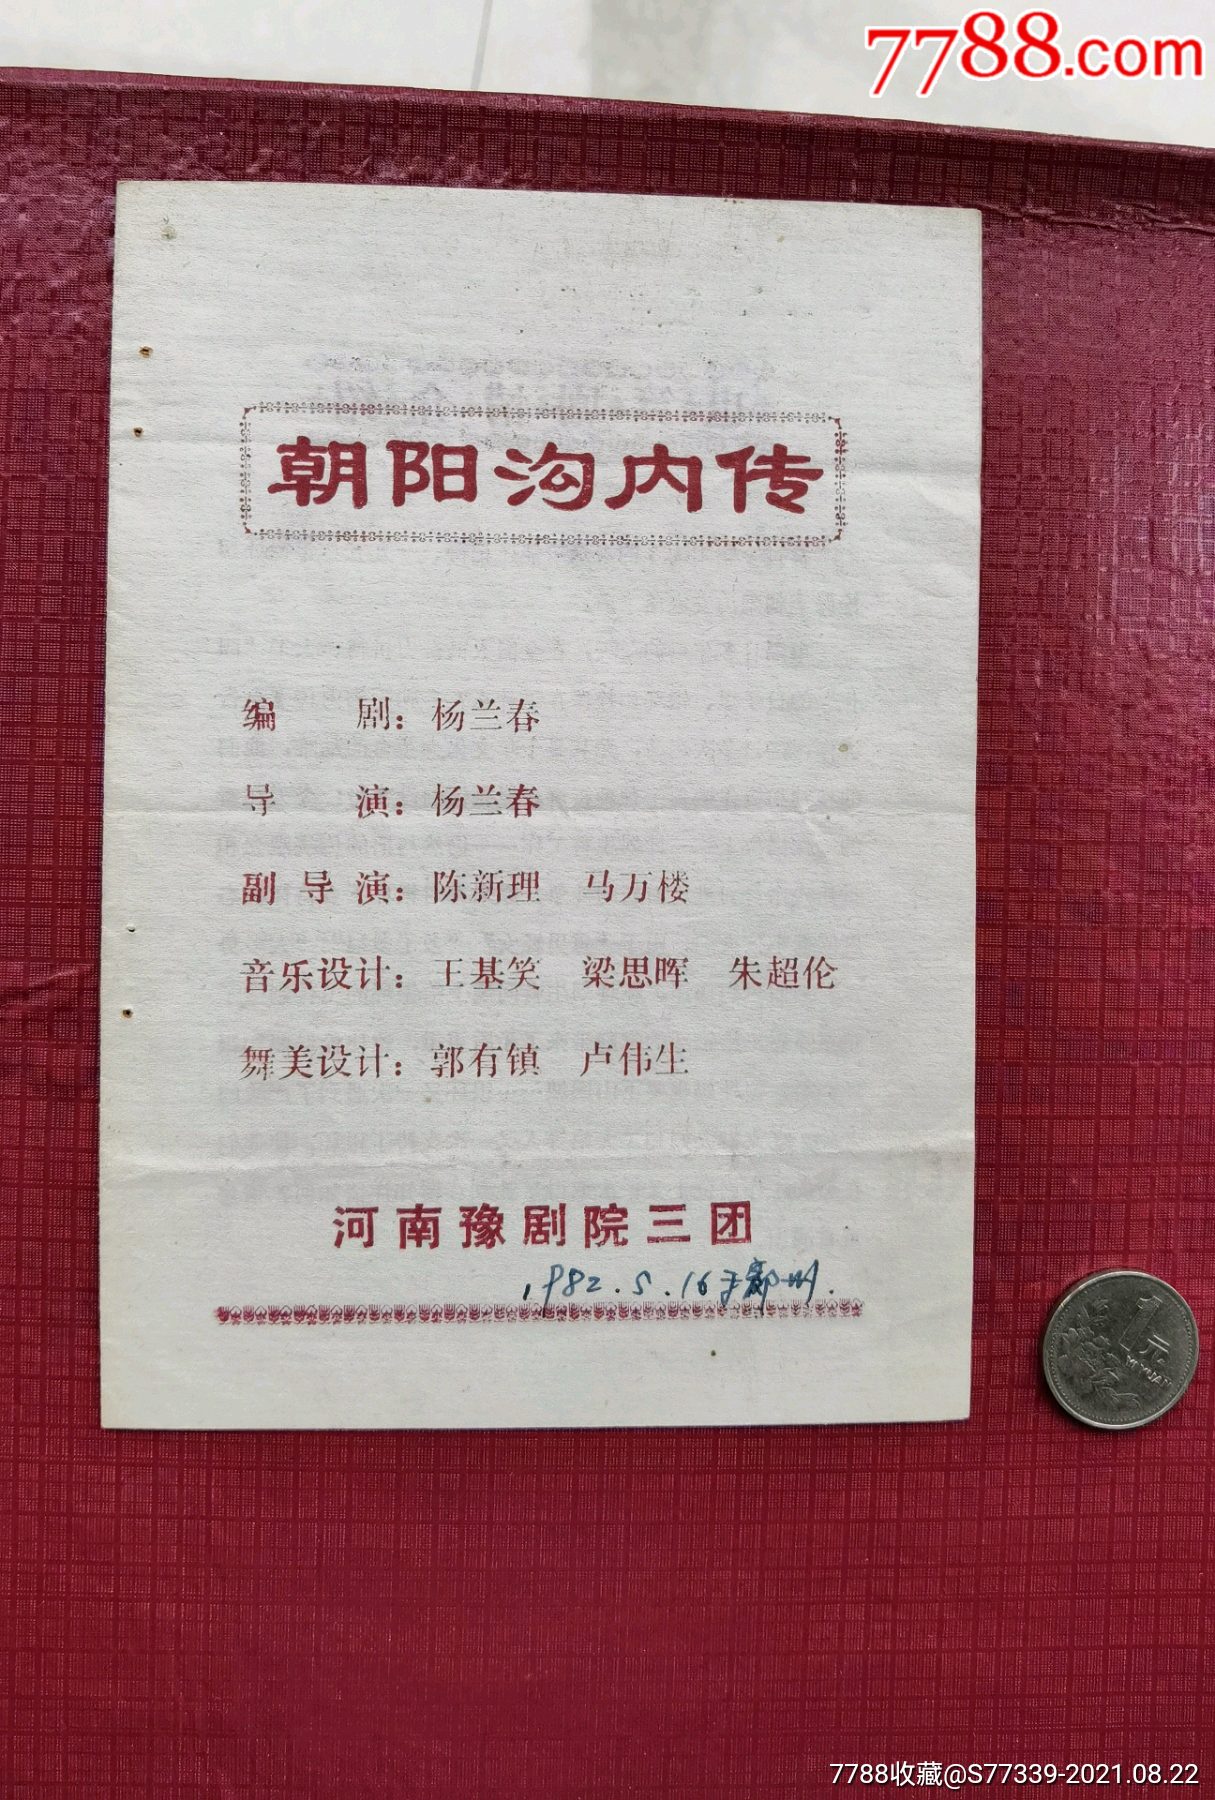 7788.com
朝阳沟内传
编 剧：杨兰春
导 演：杨兰春
副导演：陈新理 马万楼
音乐设计：王基笑 梁思晖 朱超伦
舞美设计：郭有镇 卢伟生
河南豫剧院三团
1982.5.16于郑州.
1元
YI YUAN
7788收藏@S77339-2021.08.22